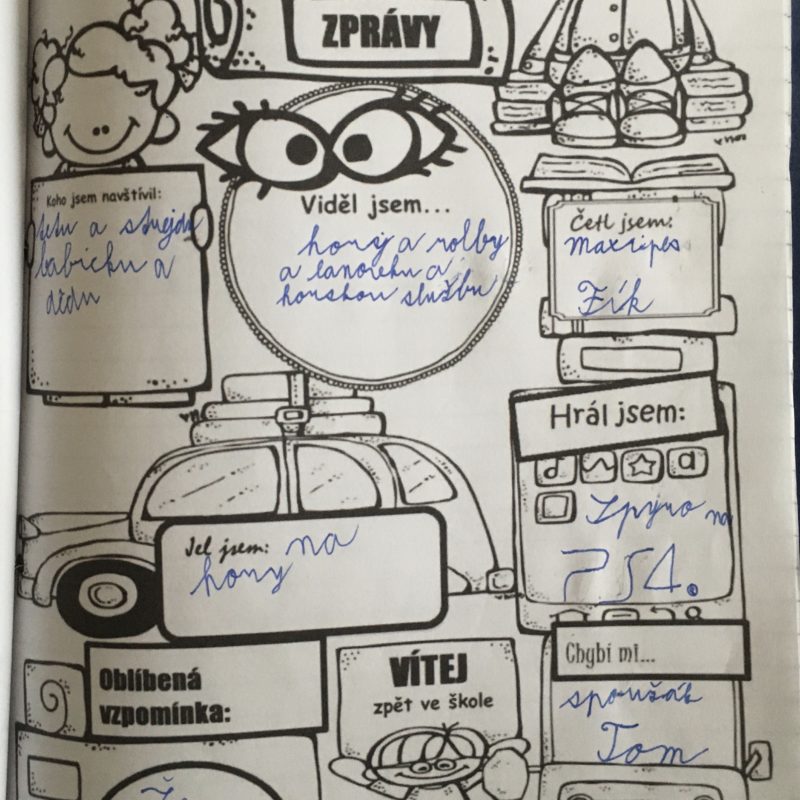 ZPRÁVY
Koho jsem navštívil:
tetu a strejdu
babičku a
dědu
Viděl jsem...
hory a rolby
a lanovku a
horskou službu
Četl jsem:
Maxipes
Fík
Hrál jsem:
na
PS4.
Jel jsem: na
hory
Oblíbená
vzpomínka:
VÍTEJ
zpět ve škole
Chybí mi...
spolužák
Tom